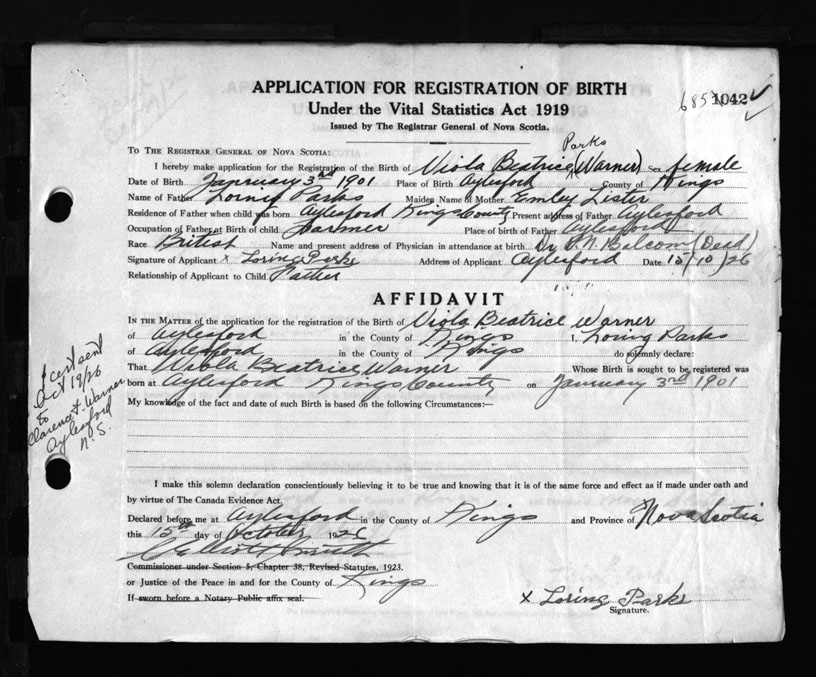 APPLICATION FOR REGISTRATION OF BIRTH
Under the Vital Statistics Act 1919
Issued by The Registrar General of Nova Scotia.
1042
To The Registrar General of Nova Scotia:
Parks
I hereby make application for the Registration of the Birth of Viola Beatrice (Warner) Sex female
Date of Birth January 3rd 1901 Place of Birth Aylesford County of Kings
Name of Father Loring Parks Maiden Name of Mother Emley Lister
Residence of Father when child was born Aylesford Kings County Present address of Father Aylesford
Occupation of Father at Birth of child Farmer Place of birth of Father Aylesford
Race British Name and present address of Physician in attendance at birth Dr Balcom (Dead)
Signature of Applicant x Loring Parks Address of Applicant Aylesford Date 15/10/26
Relationship of Applicant to Child Father
AFFIDAVIT
In the Matter of the application for the registration of the Birth of Viola Beatrice Warner
of Aylesford in the County of Kings I, Loring Parks
of Aylesford in the County of Kings do solemnly declare:
That Viola Beatrice Warner Whose Birth is sought to be registered was
born at Aylesford Kings County on January 3rd 1901
My knowledge of the fact and date of such Birth is based on the following Circumstances:—
1 cert sent
Oct 19/26
to
Clarence F. Warner
Aylesford
N.S.
I make this solemn declaration conscientiously believing it to be true and knowing that it is of the same force and effect as if made under oath and
by virtue of The Canada Evidence Act.
Declared before me at Aylesford in the County of Kings and Province of Nova Scotia
this 15th day of October 1926
Smith
Commissioner under Section 5, Chapter 38, Revised Statutes, 1923.
or Justice of the Peace in and for the County of Kings
If sworn before a Notary Public affix seal.
x Loring Parks
Signature.